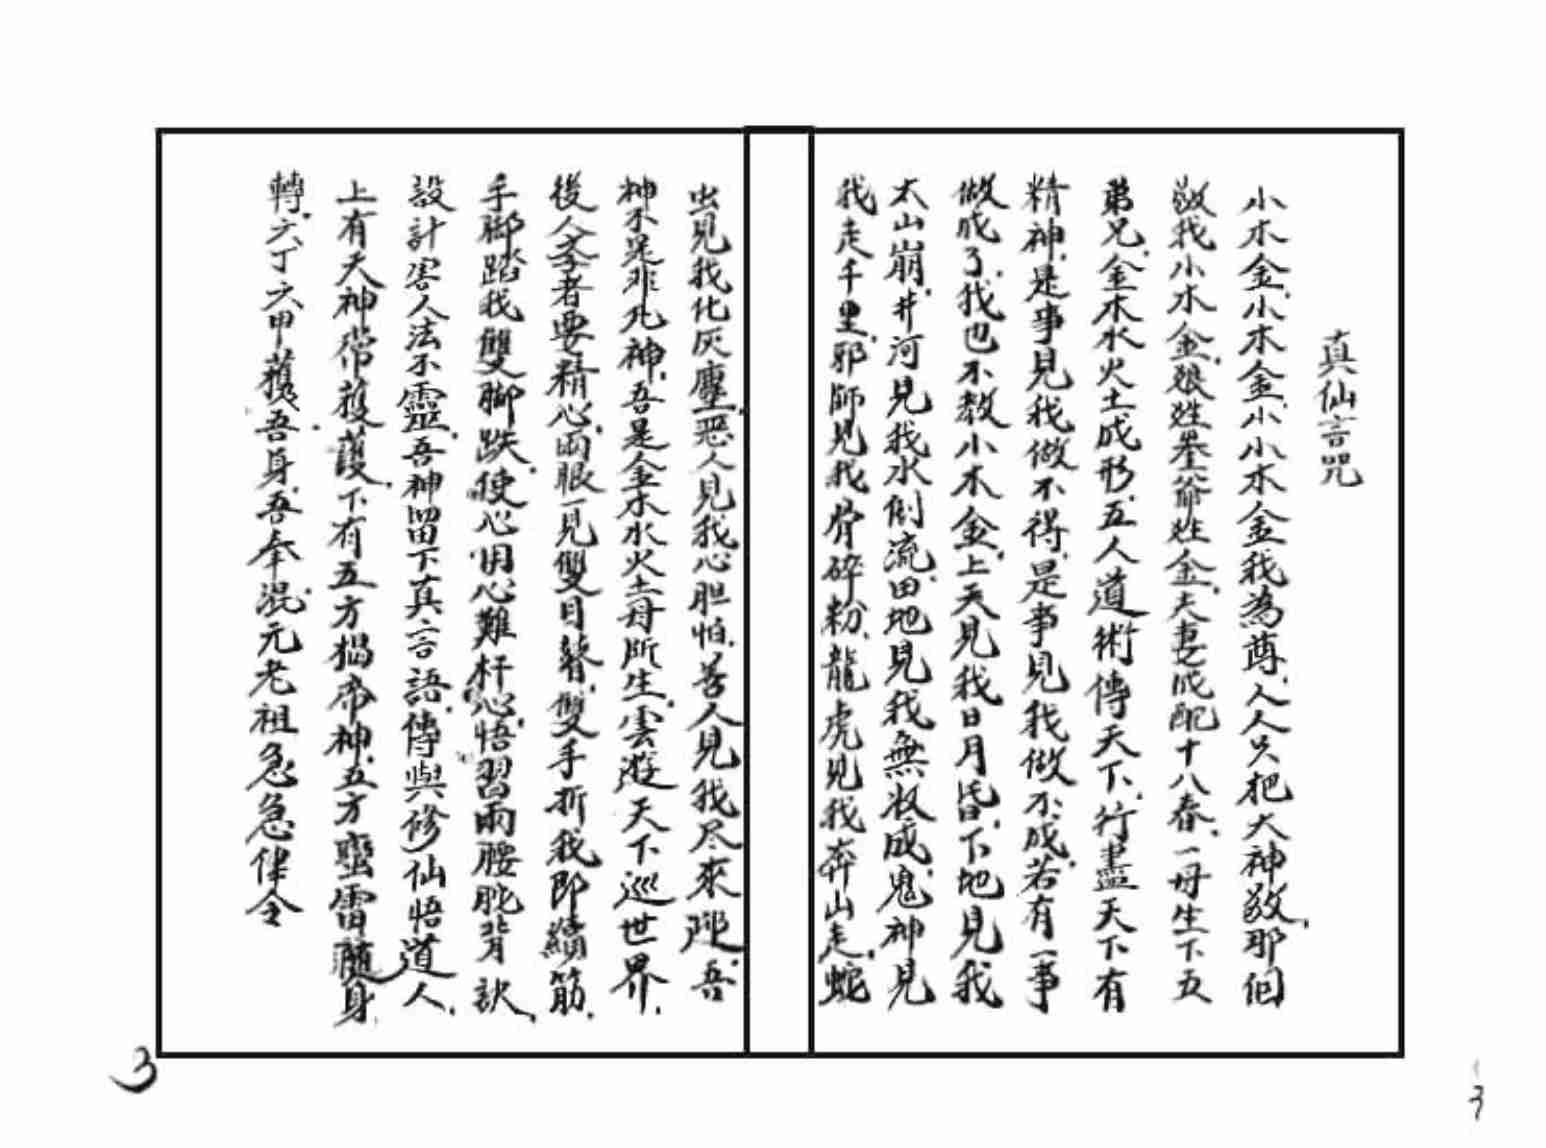 真仙言咒
小木金、小木金、小小木金我為尊、人人只把大神敬、那個
敬我小木金、娘姓  爺姓金、夫妻成配十八春、一母生下五
弟兄、金木水火土成形、五人道術傳天下、行盡天下有
精神、是事見我做不得、是事見我做不成、若有一事
做成了、我也不教小木金、上天見我日月昏、下地見我
太山崩、井河見我水倒流、田地見我無收成、鬼神見
我走千里、邪師見我骨碎粉、龍虎見我奔山走、蛇
虫見我化灰塵、惡人見我心胆怕、善人見我尽來 、吾
神不是非凡神、吾是金木水火土母所生、雲遊天下巡世界、
後人学者要精心、兩眼一見雙目瞽、雙手折我即續筋、
手脚踏我雙脚跌、使心用心難 心、悟習兩腰 背訣、
設計害人法不靈、吾神留下真言語、傳與修仙悟道人、
上有天神常 護、下有五方猖帝神、五方蠻雷隨身
轉、六丁六甲 吾身、吾奉混元老祖急急律令
3
3